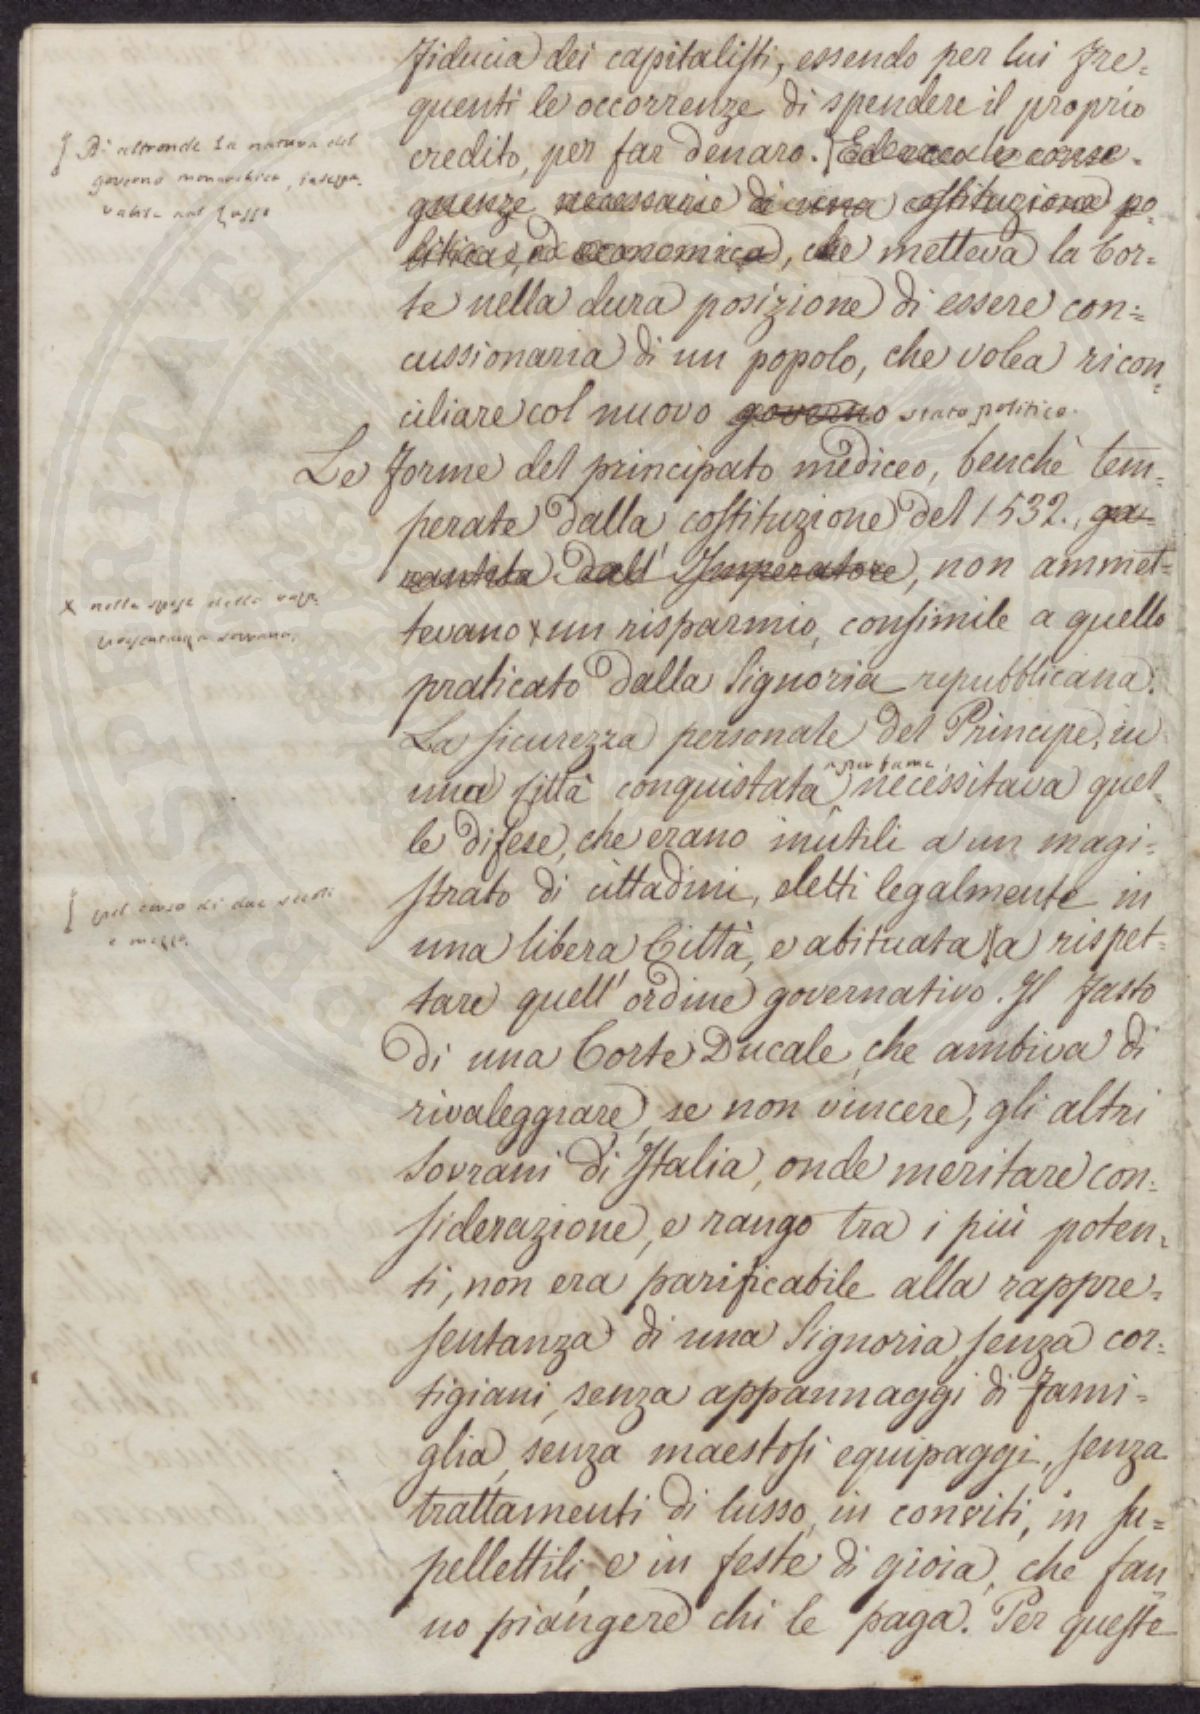 fiducia dei capitalisti, essendo per lui fre=
quenti le occorrenze di spendere il proprio
credito, per far denaro. Ed ecco le conse=
guenze necessarie di una costituzione po=
litica, ed economica, che metteva la Cor=
te nella dura posizione di essere con=
cussionaria di un popolo, che volea ricon=
ciliare col nuovo governo stato politico.
Le forme del principato mediceo, benchè tem=
perate dalla costituzione del 1532., ga=
rantita dall' Imperatore, non ammet=
tevano x un risparmio, consimile a quello
praticato dalla Signoria repubblicana.
La sicurezza personale del Principe, in
una Città conquistata per fame, necessitava quel=
le difese, che erano inutili a un magi=
strato di cittadini, eletti legalmente in
una libera Città, e abituata a rispet=
tare quell' ordine governativo. Il fasto
di una Corte Ducale, che ambiva di
rivaleggiare, se non vincere, gli altri
Sovrani di Italia, onde meritare con=
siderazione, e rango tra i più poten=
ti, non era parificabile alla rappre=
sentanza di una Signoria senza cor=
tigiani, senza appannaggi di fami=
glia, senza maestosi equipaggi, senza
trattamenti di lusso, in conviti, in su=
pellettili, e in feste di gioia, che fan=
no piangere chi le paga. Per queste
D'altronde la natura del
governo monarchico,
x nelle spese della
sovrana,
nel corso di due secoli
e mezzo.